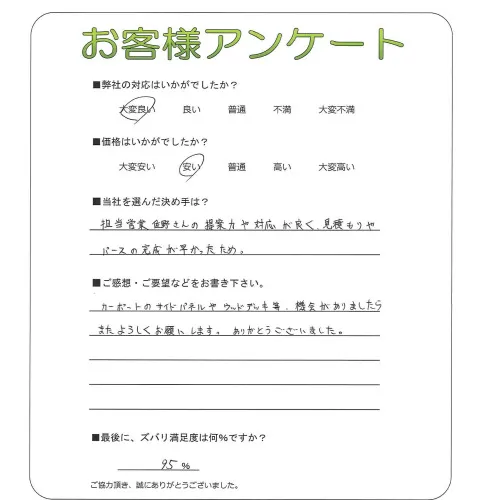 お客様アンケート
■弊社の対応はいかがでしたか？
大変良い 良い 普通 不満 大変不満
■価格はいかがでしたか？
大変安い 安い 普通 高い 大変高い
■当社を選んだ決め手は？
担当営業 魚野さんの提案力や対応が良く、見積もりや
パースの完成が早かったため。
■ご感想・ご要望などをお書き下さい。
カーポートのサイドパネルやウッドデッキ等、機会がありましたら
またよろしくお願いします。ありがとうございました。
■最後に、ズバリ満足度は何%ですか？
95 %
ご協力頂き、誠にありがとうございました。